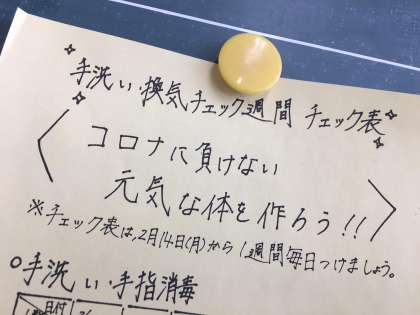 手洗い・換気チェック週間 チェック表
コロナに負けない
元気な体を作ろう!!
※チェック表は、2月14日(月)から1週間毎日つけましょう。
○手洗い・手指消毒
日付